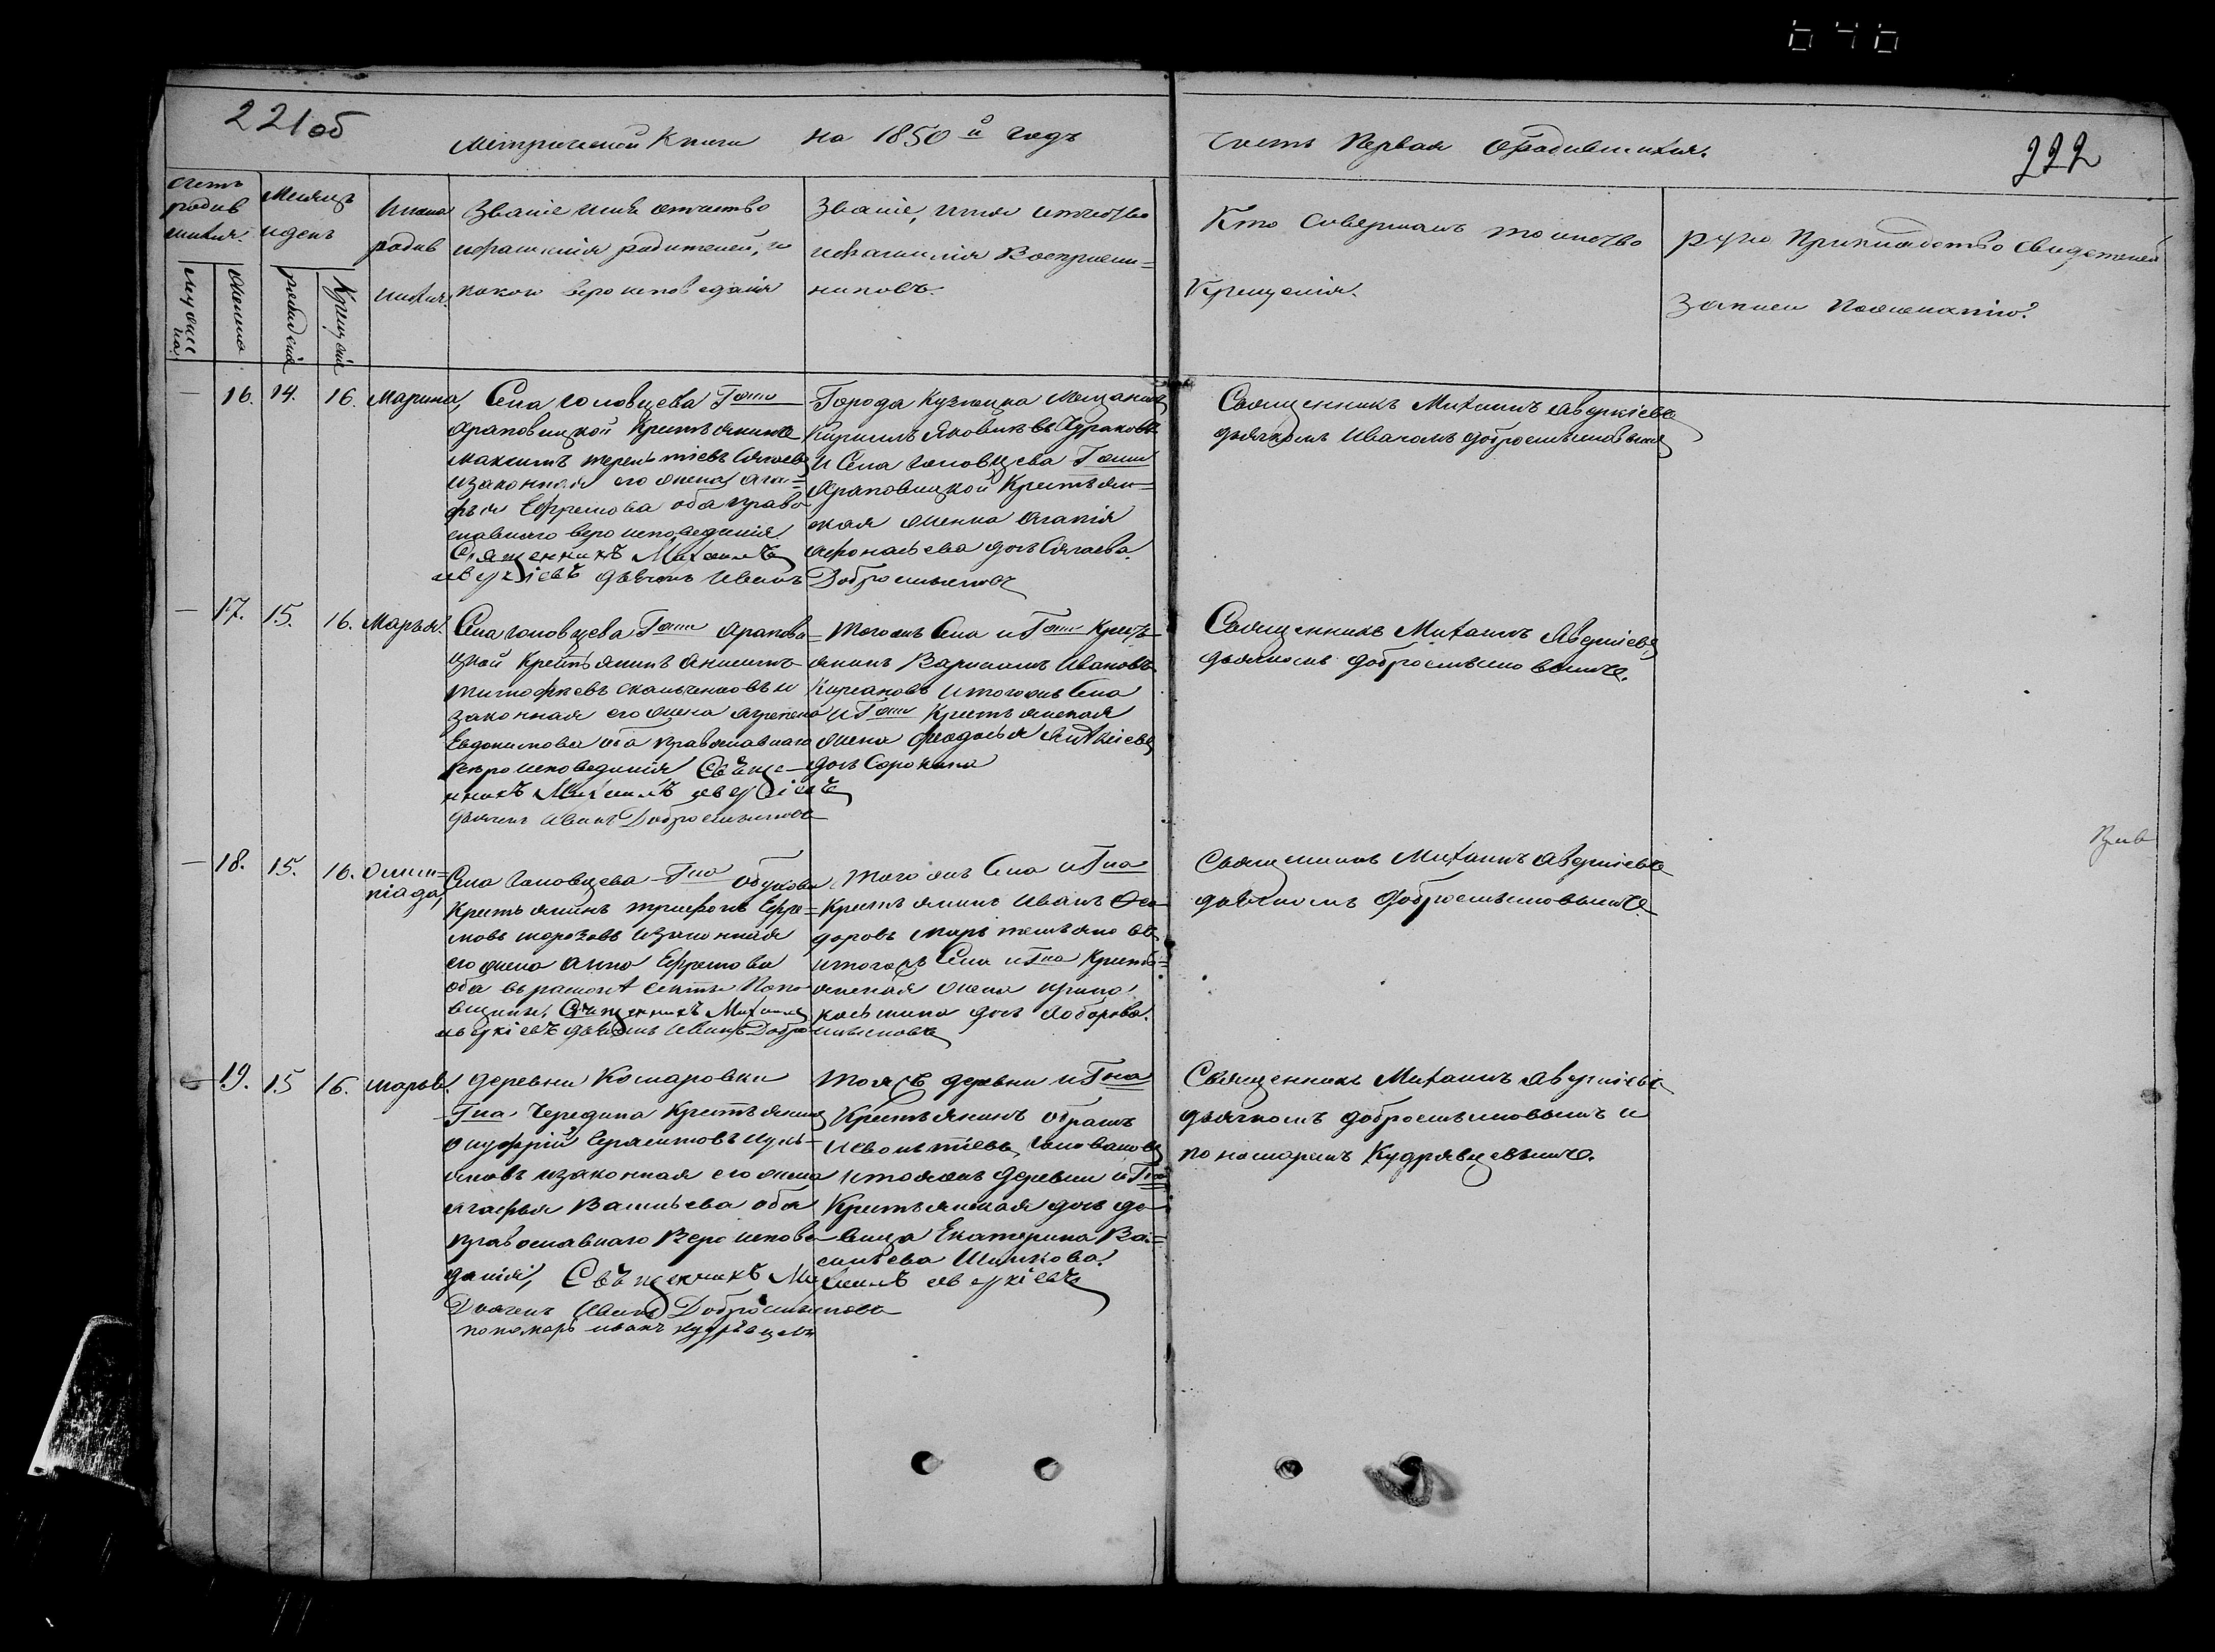 646
221об
Метрической Книги на 1850й годъ
Часть Первая о родившихся.
222
счетъ родившихся.
Мужеска
Женска
Месяцъ и день
рождения
Крещения
Имена родившихся.
Званіе имя отчество
и фамилія родителей, и
какого вероисповеданія
Званіе, имя и отчество
и фамилія Восприем=
никовъ.
Кто совершалъ таинство
Крещенія.
рукоприкладство свидетелей
записи по желанію.
— 16. 14. 16. Марина,
Села Головщева Гжи
Араповицкой Крестьянинъ
Максимъ Терентіевъ
и законная его жена Ага=
фья Ефремова оба право
славнаго вероисповеданія
Священникъ Михаилъ
Авуркіевъ дьячекъ Иванъ Добросмысловъ
Города Кузнецка мещанинъ
Кирилъ Яковлевъ
и Села Головщева Гжи
Араповицкой Крестьян=
ская женка Агапія
Афонасьева дочь
Священникъ Михаилъ Авуркіевъ
дьячкомъ Иваномъ Добросмысловымъ
— 17. 15. 16. Марья.
Села Головщева Гжи Арапови=
цкой Крестьянинъ Анисимъ
Тимофеевъ и
законная его жена Агрепена
Евдокимова оба православнаго
вероисповеданія Свѣще—
нникъ Михаилъ Авуркіевъ
дьячекъ Иванъ Добросмысловъ
Того жъ Села и Гжи Кресть
янинъ Варламъ Ивановъ
Кирсановъ и того жъ Села
и Гжи Крестьянская
жена Феодосья
дочь Сорокина
Священникъ Михаилъ Авуркіевъ
дьячкомъ Добросмысловымъ.
— 18. 15. 16. Олим=
піада,
Села Головщева Гна Обухова
Крестьянинъ Трифонъ Ефре=
мовъ Морозовъ и законная
его жена Анна Ефремова
оба въ расколѣ секты Попо
вщины, Свѣщенникъ Михаилъ
Авуркіевъ дьячекъ Иванъ Добросмысловъ
Того жъ Села и Гна
Крестьянинъ Иванъ Фео
доровъ
и того жъ Села и Гна Кресть=
янская жена Ирина
Косьмина дочь
Священникъ Михаилъ Авуркіевъ
дьячкомъ Добросмысловымъ
— 19. 15 16. Марья.
деревни Комаровки
Гна Чередина Крестьянинъ
Онуфрій
и законная его жена
Агафья Васильева оба
Православнаго Вероиспове
данія, Свѣщенникъ Михаилъ Авуркіевъ
Дьячекъ Иванъ Добросмысловъ
пономарь Иванъ Кудрѣвцевъ
Тояжъ деревни и Гна
Крестьянинъ Абрамъ
и тояжъ деревни и Гна
Крестьянская дочь де
вица Екатерина Ва=
сильева Шишкова.
Священникъ Михаилъ Авуркіевъ
дьячкомъ Добросмысловымъ и
пономаремъ Кудрявцевымъ.